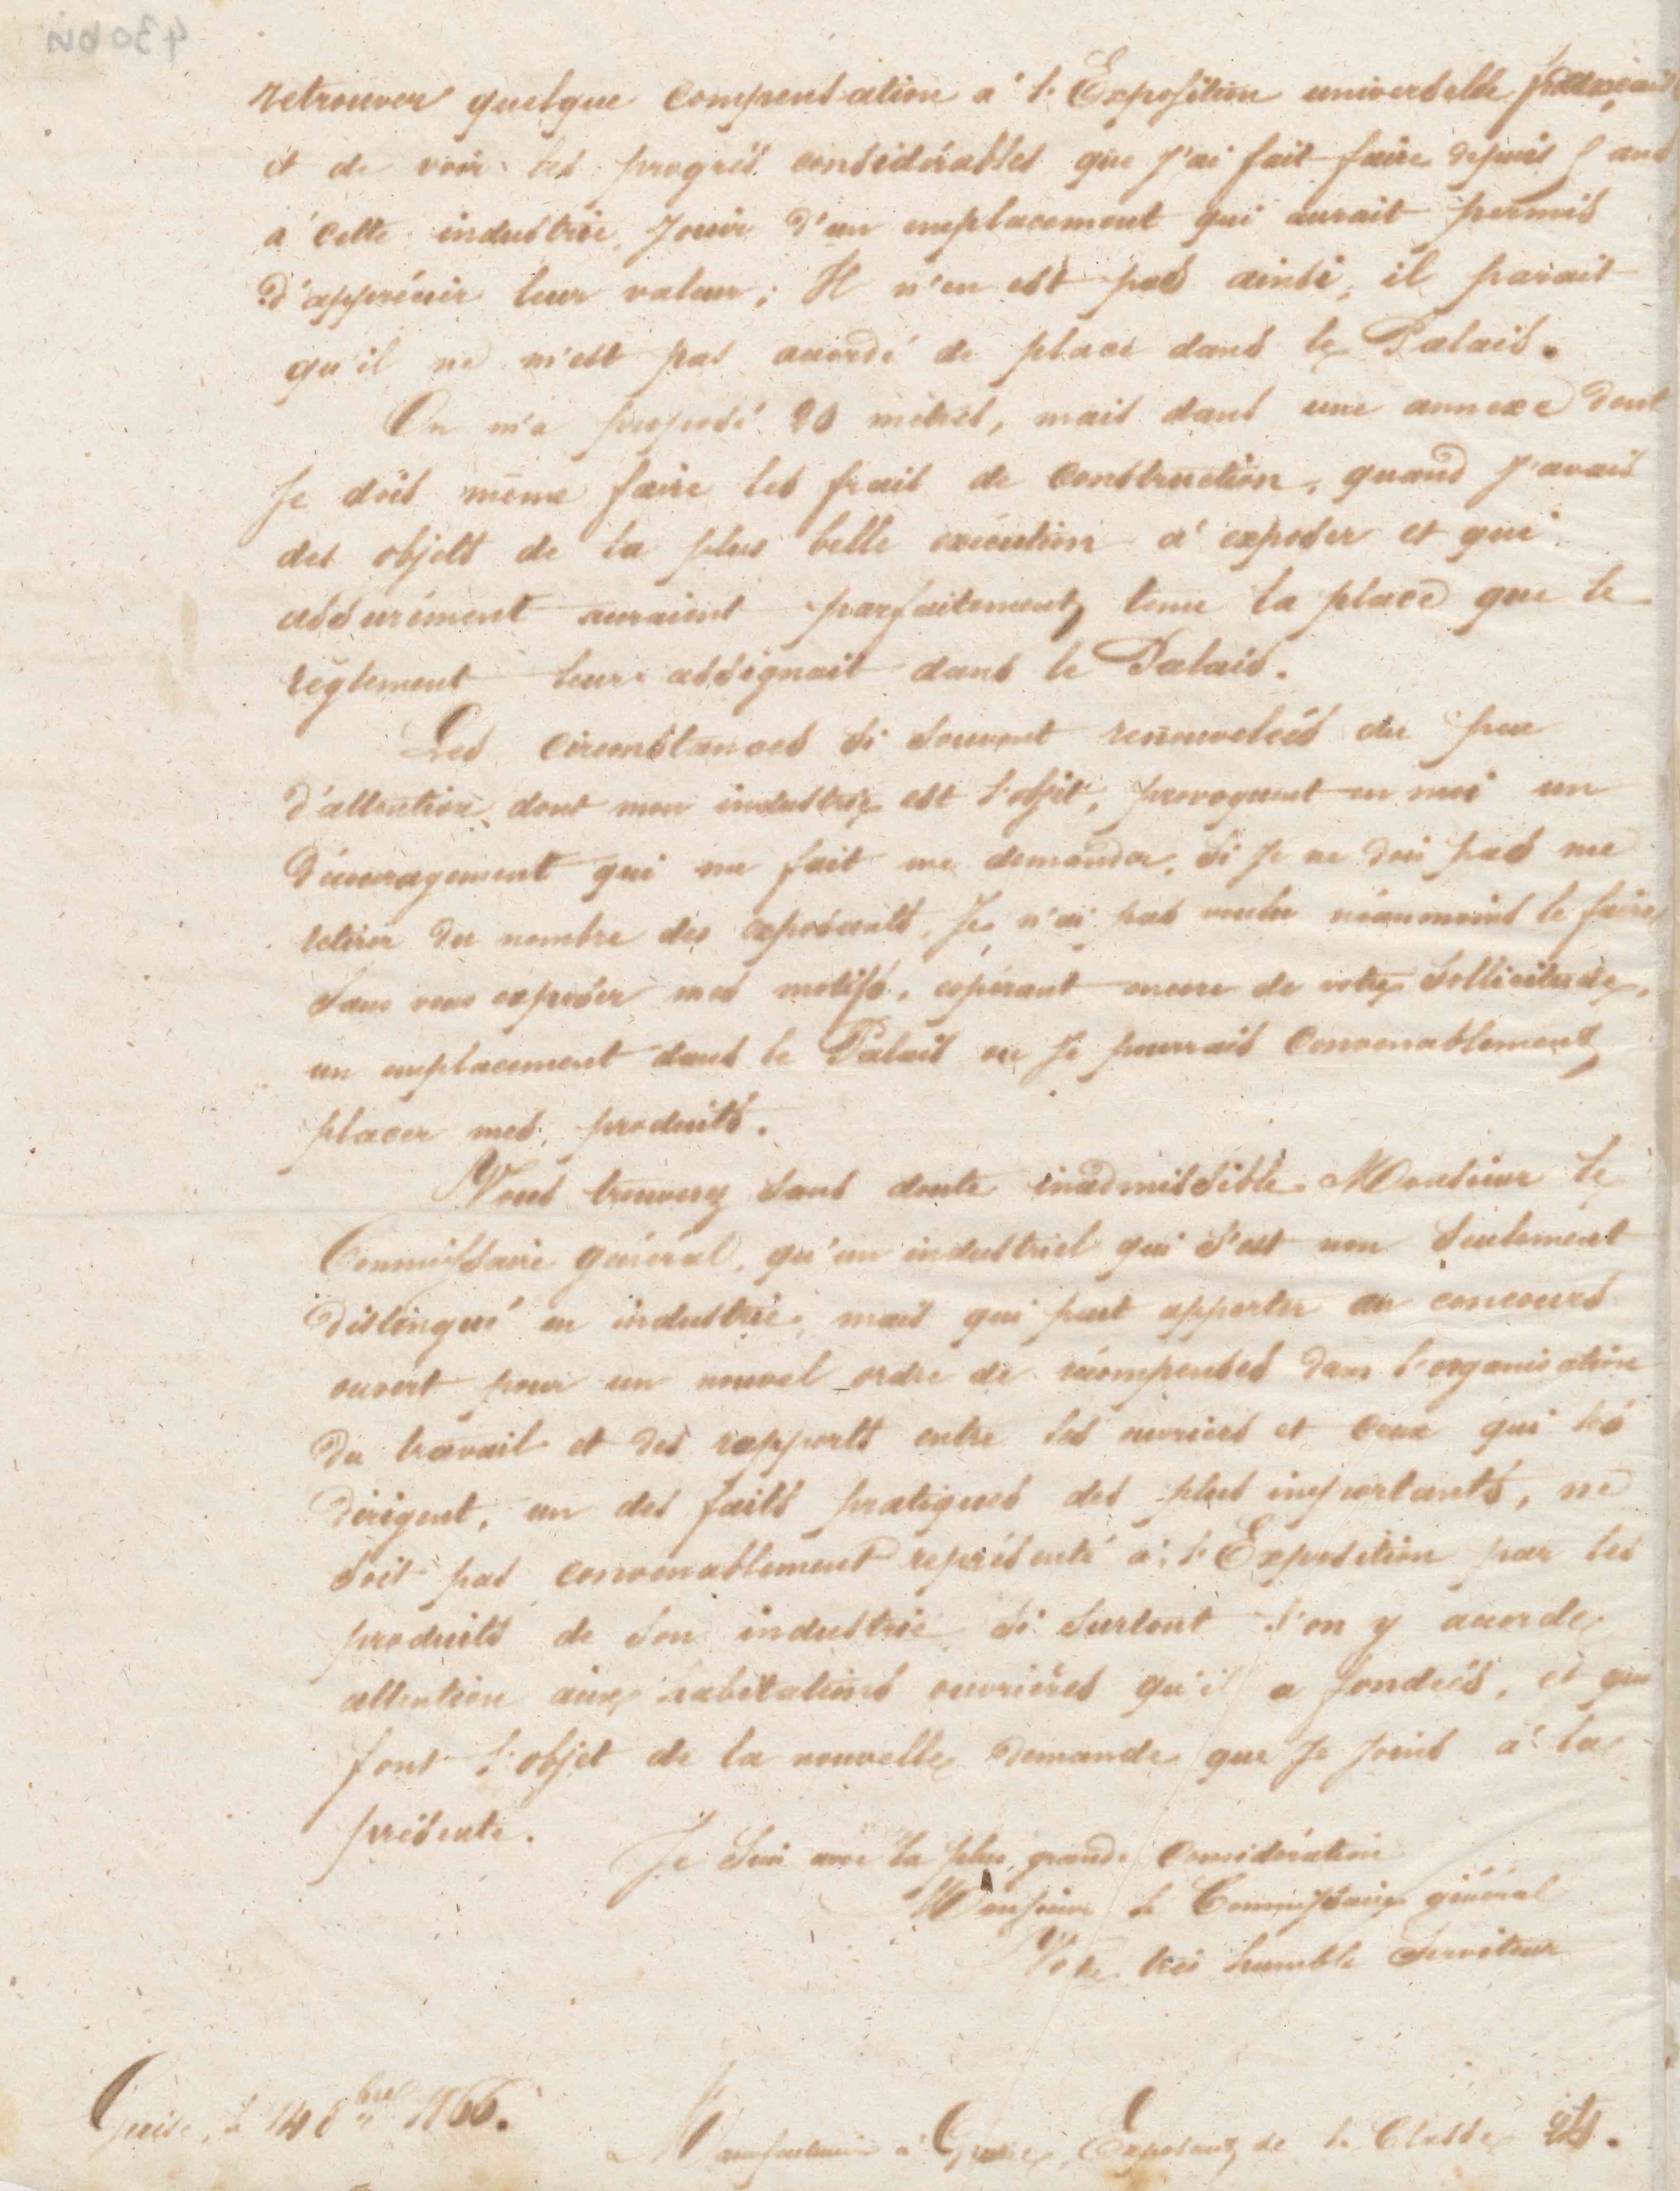 retrouver quelque compensation à l'Exposition universelle
et de voir les progrès considérables que j'ai fait faire depuis ans
à cette industrie, jouir d'un emplacement qui aurait permis
d'apprécier leur valeur; Il n'en est pas ainsi, il parait
qu'il ne m'est pas accordé de place dans le Palais.
On m'a proposé 20 mètres, mais dans une annexe dont
Je dois même faire les frais de construction, quand j'avais
des objets de la plus belle exécution à exposer et qui
assurément auraient parfaitement tenu la place que le
règlement leur assignait dans le Palais.
Les circonstances si souvent renouvelées du peu
d'attention dont mon industrie est l'objet, provoquent en moi un
découragement qui me fait me demander, si je ne dois pas me
retirer du nombre des exposants. Je n'ai pas voulu néanmoins le faire
sans vous exposer mes motifs, espérant encore de votre sollicitude,
un emplacement dans le Palais ou je pourrais convenablement
placer mes produits.
Vous trouverez sans doute inadmissible Monsieur le
Commissaire général, qu'un industriel qui s'est non seulement
distingué en industrie, mais qui peut apporter au concours
ouvert pour un nouvel ordre de récompenses dans l'organisation
du travail et des rapports entre les ouvriers et ceux qui les
dirigent, un des faits pratiques des plus importants, ne
soit pas convenablement représenté à l'Exposition par les
produits de son industrie si surtout l'on y accorde
attention aux habitations ouvrières qu'il a fondées, et qui
font l'objet de la nouvelle demande que je joins à la
présente.
Je suis avec la plus grande considération
Monsieur le Commissaire général
Votre très humble serviteur
Guise, le 14 8bre 1866.
Manufacturier à Guise, Exposant de la Classe 24.
430 bis